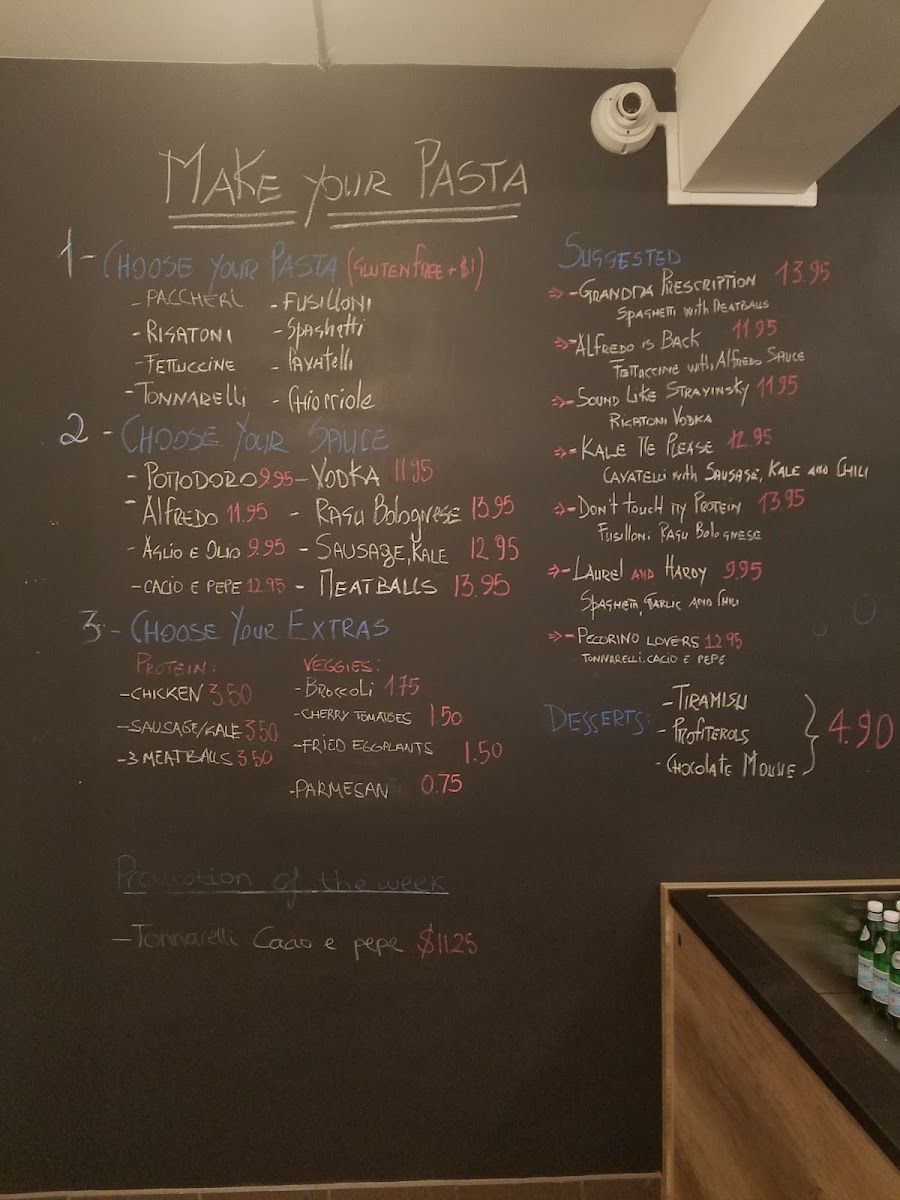 Make your Pasta
1- Choose your Pasta (Gluten free + $1)
- Paccheri - Fusilloni
- Rigatoni - Spaghetti
- Fettuccine - Cavatelli
- Tonnarelli - Chiocciole
2 - Choose your Sauce
- Pomodoro 9.95 - Vodka 11.95
- Alfredo 11.95 - Ragu Bolognese 13.95
- Aglio e Olio 9.95 - Sausage, Kale 12.95
- Cacio e pepe 12.95 - Meatballs 13.95
3 - Choose your Extras
Protein: Veggies:
- Chicken 3.50 - Broccoli 1.75
- Sausage/Kale 3.50 - Cherry tomatoes 1.50
- 3 Meatballs 3.50 - Fried eggplants 1.50
- Parmesan 0.75
Promotion of the week
- Tonnarelli Cacio e pepe $11.25
Suggested
⇒ - Grandma Prescription 13.95
Spaghetti with Meatballs
⇒ - Alfredo is Back 11.95
Fettuccine with Alfredo Sauce
⇒ - Sound Like Stravinsky 11.95
Rigatoni Vodka
⇒ - Kale Me Please 12.95
Cavatelli with Sausage, Kale and Chili
⇒ - Don't touch my Protein 13.95
Fusilloni Ragu Bolognese
⇒ - Laurel and Hardy 9.95
Spaghetti, Garlic and Chili
⇒ - Pecorino lovers 12.95
Tonnarelli. cacio e pepe
Desserts: - Tiramisu
- Profiterols
- Chocolate Mousse } 4.90